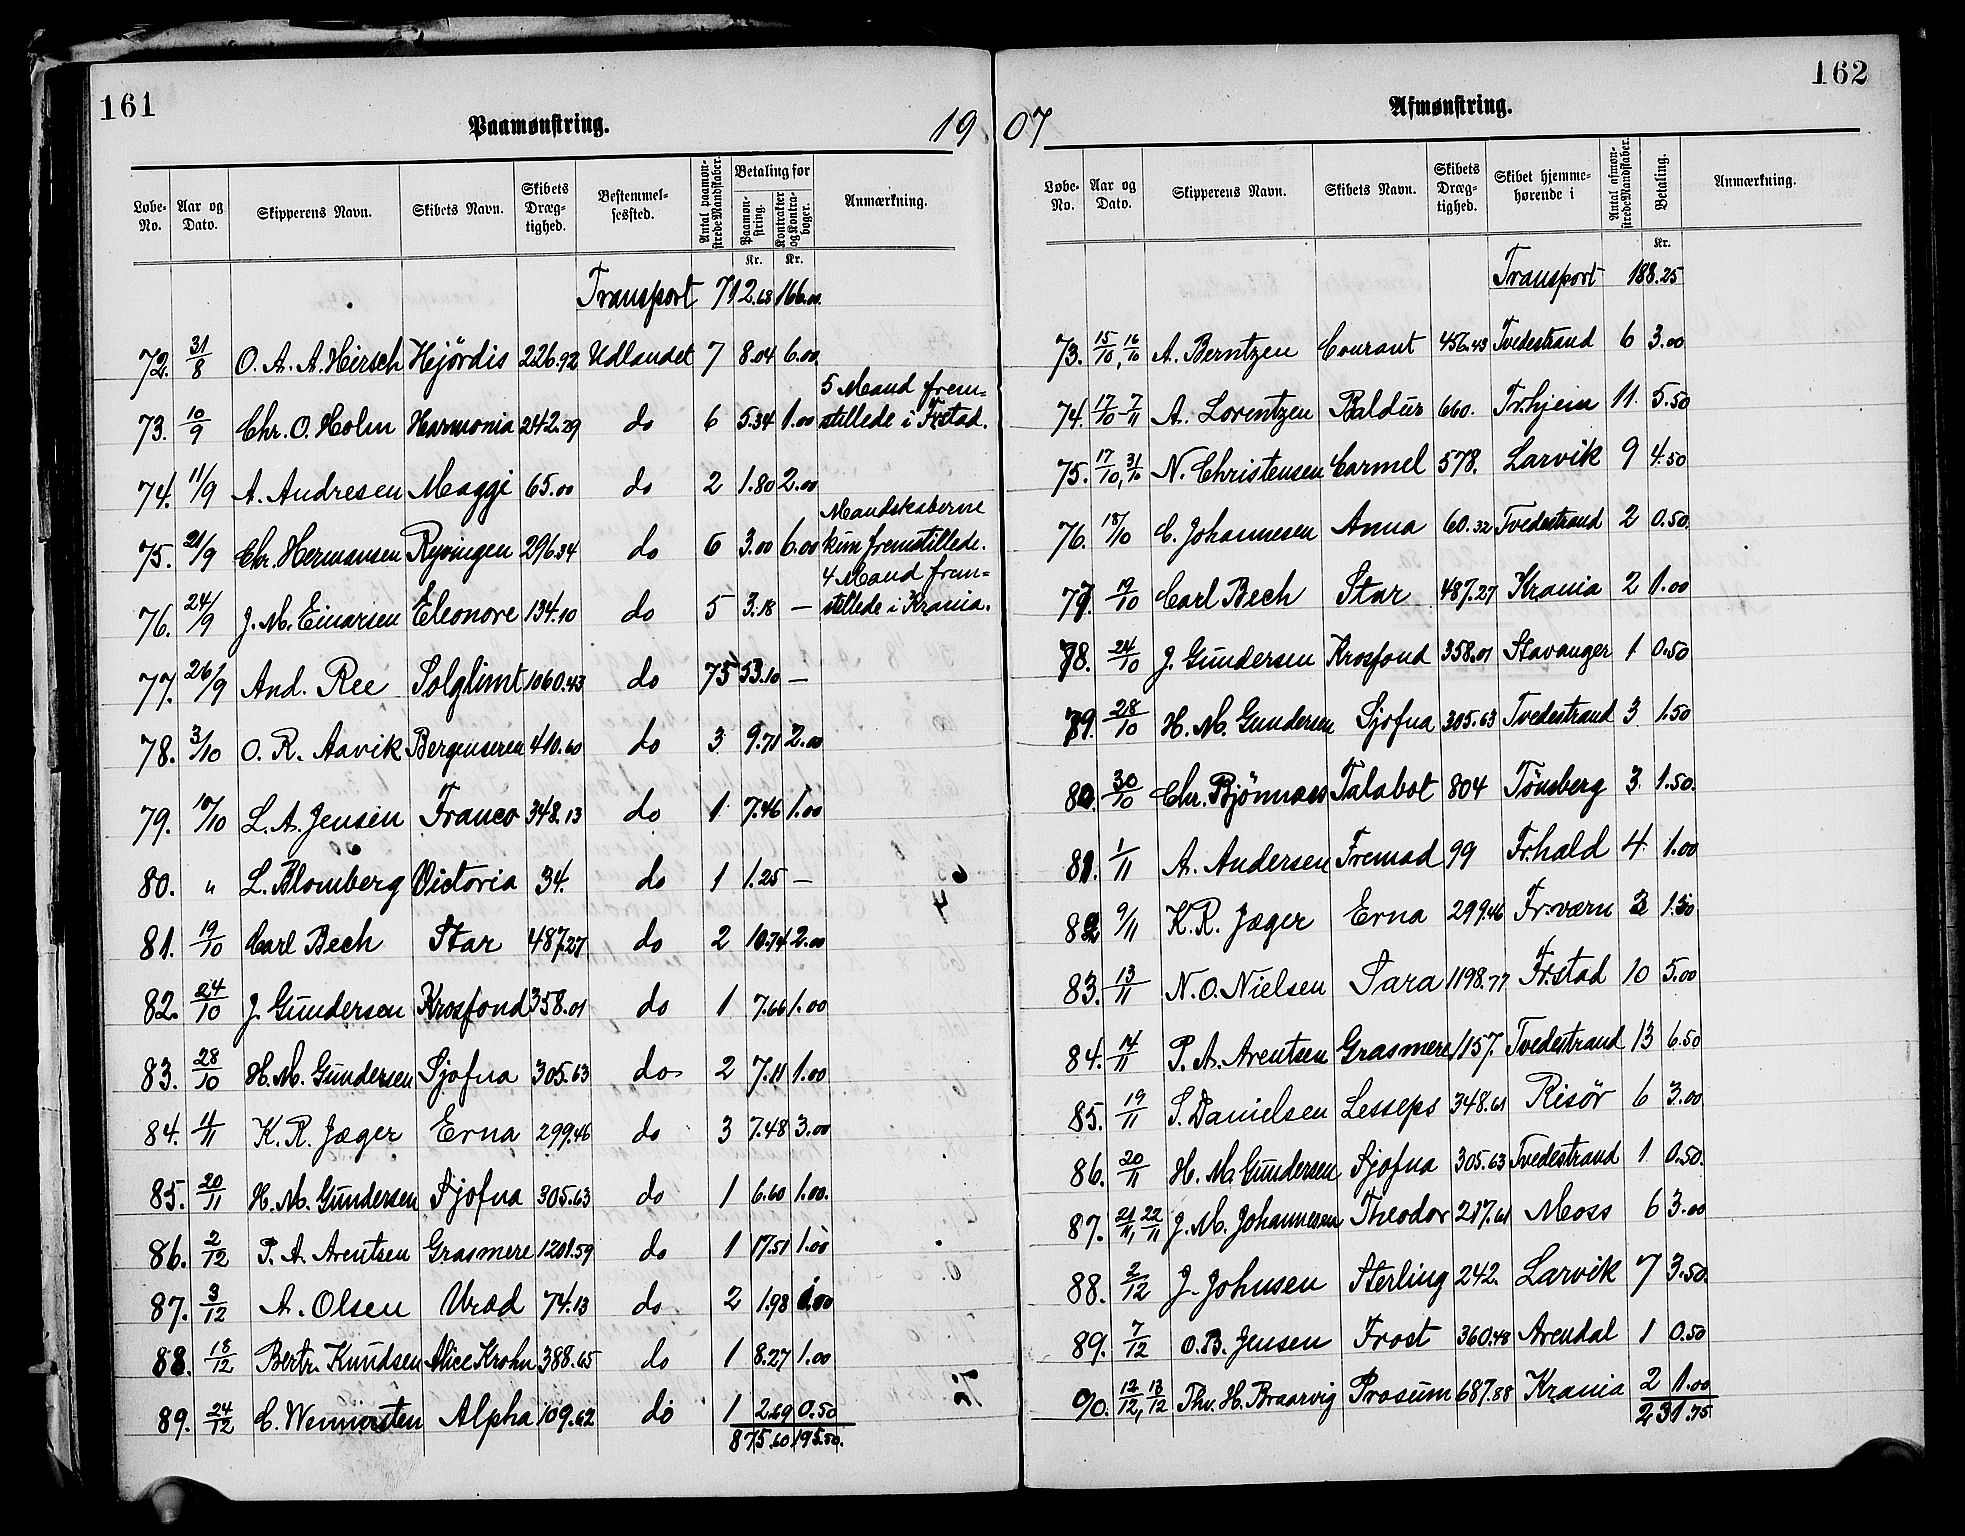 161
Paamønstring.
19
Løbe-No. Aar og Dato. Skipperens Navn. Skibets Navn. Skibets Dræg-tighed. Bestemmel-sessted. Antal paamøn-strede Mandskaber. Betaling for Paamøn-string. Kontrakter og Kontra-bøger. Anmærkning.
Kr. Kr.
Transport 712.68 166.00
72. 31/8 O. A. A. Hirsch Hjördis 226.92 Udlandet 7 8.04 6.00
73. 10/9 Chr. O. Holm Harmonia 242.29 do 6 5.34 1.00 5 Mand frem=stillede i Frstad.
74. 11/9 A. Andresen Maggi 65.00 do 2 1.80 2.00
75. 21/9 Chr. Hermansen Ryvingen 296.34 do 6 3.00 6.00 Mandskaberne kun fremstillede.
76. 24/9 J. M. Einarsen Eleonore 134.10 do 5 3.18 — 4 Mand frem=stillede i Krania.
77. 26/9 And. Ree Solglimt 1060.43 do 75 53.10 —
78. 3/10 O. R. Aavik Bergenseren 410.60 do 3 9.71 2.00
79. 10/10 L. A. Jensen Franco 348.13 do 1 7.46 1.00
80. " L. Blomberg Victoria 34. do 1 1.25 —
81. 19/10 Carl Bech Star 487.27 do 2 10.74 2.00
82. 24/10 J. Gundersen Krosfond 358.01 do 1 7.66 1.00
83. 28/10 H. M. Gundersen Sjofna 305.63 do 2 7.11 1.00
84. 4/11 K. R. Jæger Erna 299.46 do 3 7.48 3.00
85. 20/11 H. M. Gundersen Sjofna 305.63 do 1 6.60 1.00.
86. 2/12 P. A. Arentsen Grasmere 1201.59 do 1 17.51 1.00
87. 3/12 A. Olsen Uræd 74.13 do 2 1.98 1.00
88. 18/12 Bertr. Knudsen Alice Krohn 388.65 do 1 8.27 1.00
89. 24/12 C. Wennersten Alpha 109.62 do 1 2.69 0.50
875.60 195.50.
162
Afmønstring.
07
Løbe-No. Aar og Dato. Skipperens Navn. Skibets Navn. Skibets Dræg-tighed. Skibet hjemme-hørende i Antal afmøn-strede Mandskaber. Betaling. Anmærkning.
Kr.
Transport 188.25
73. 15/10, 16/10 A. Berntzen Courant 456.43 Tvedestrand 6 3.00
74. 17/10-7/11 A. Lorentzen Baldur 660. Tr.hjem 11 5.50
75. 17/10, 31/10 N. Christensen Carmel 578. Larvik 9 4.50
76. 18/10 C. Johannesen Anna 60.32 Tvedestrand 2 0.50
77. 19/10 Carl Bech Star 487.27 Krania 2 1.00
78. 24/10 J. Gundersen Krosfond 358.01 Stavanger 1 0.50
79. 28/10 H. M. Gundersen Sjofna 305.63 Tvedestrand 3 1.50
80. 30/10 Chr. Bjönnæs Talabot 804 Tönsberg 3 1.50.
81. 1/11 A. Andersen Fremad 99 Fr.hald 4 1.00
82. 9/11 K. R. Jæger Erna 299.46 Fr.værn 3 1.50
83. 13/11 N. O. Nielsen Sara 1198.77 Fr.stad 10 5.00
84. 14/11 P. A. Arentsen Grasmere 1157. Tvedestrand 13 6.50
85. 19/11 S. Danielsen Lesseps 348.61 Risör 6 3.00
86. 20/11 H. M. Gundersen Sjofna 305.63 Tvedestrand 1 0.50.
87. 21/11, 22/11 J. M. Johannesen Theodor 217.61 Moss 6 3.00
88. 2/12 J. Johnsen Sterling 242. Larvik 7 3.50
89. 7/12 O. B. Jensen Frost 360.48 Arendal 1 0.50
90. 12/12, 13/12 Thv. H. Braarvig Prosum 687.88 Krania 2 1.00
231.75